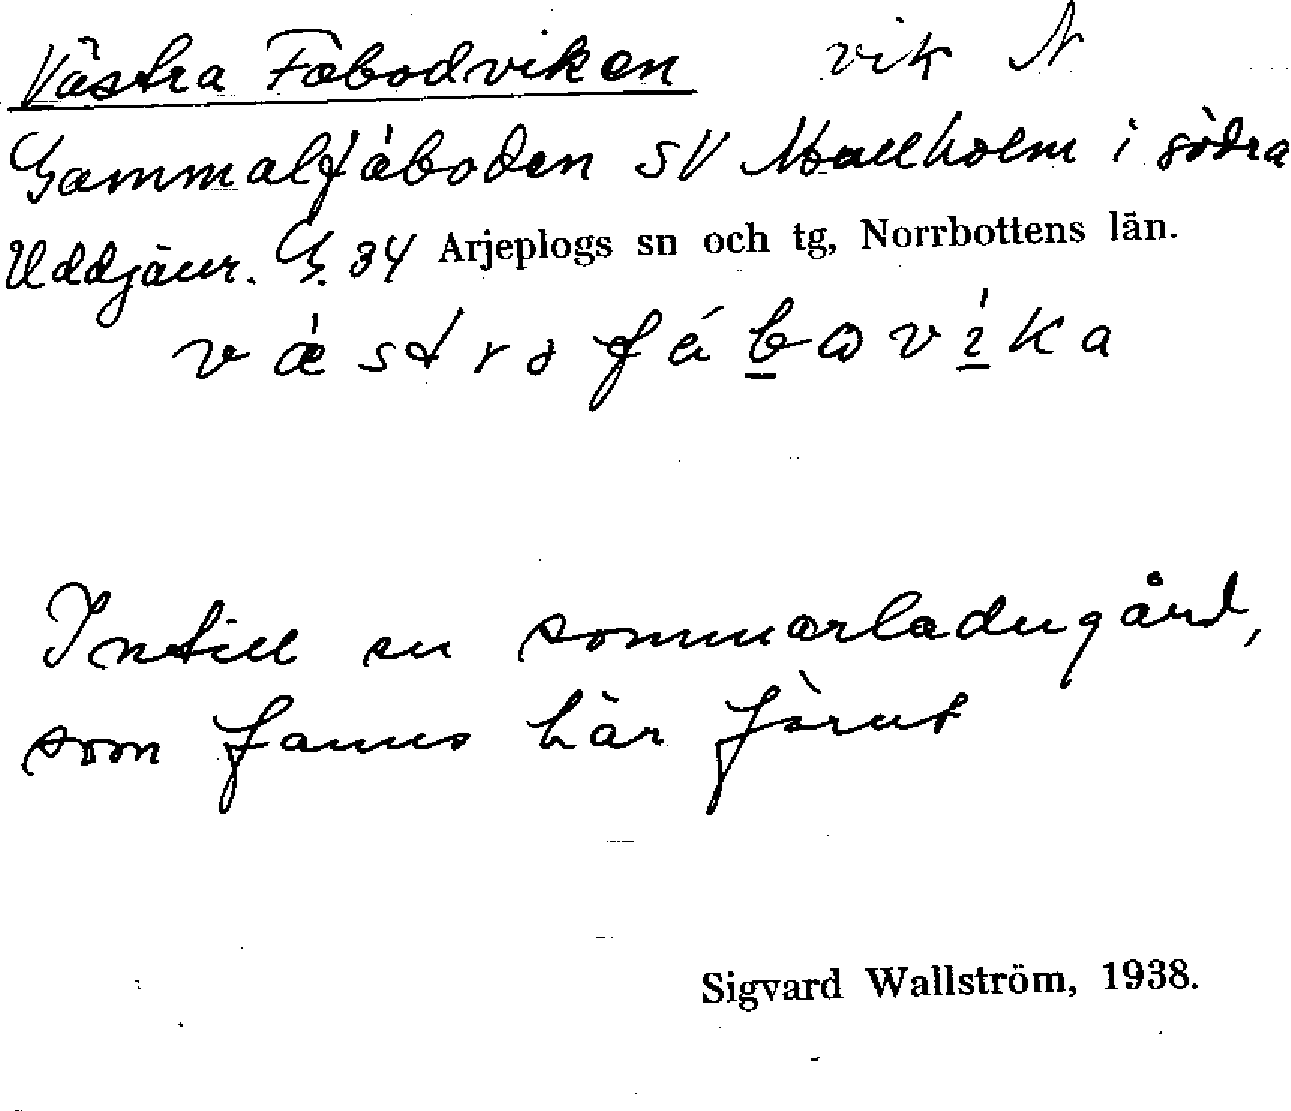 Västra Fäbodviken vik N
Gammalfäboden SV Mullholm i södra
Uddjaur. G. 34 Arjeplogs sn och tg, Norrbottens län.
Intill en sommarladugård,
som fanns här förut
Sigvard Wallström, 1938.